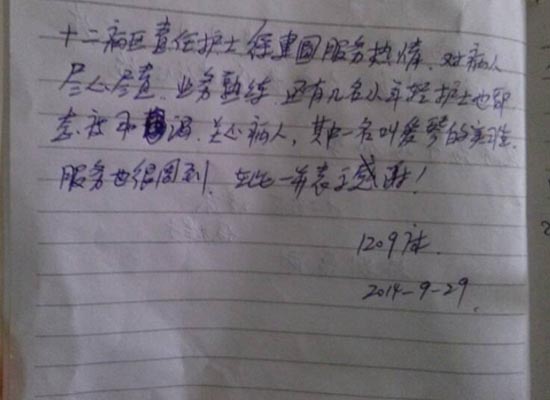 十二病区责任护士徐建国服务热情、对病人
尽心尽责、业务熟练、还有几名小年轻护士也都
态度不错、关心病人，其中一名叫爱琴的实习生
服务也很周到、在此一并表示感谢！
1209床.
2014-9-29.